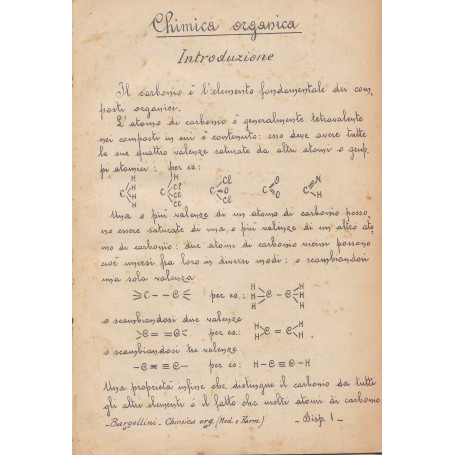 Chimica organica
Introduzione
Il carbonio è l'elemento fondamentale dei com=
posti organici.
L'atomo di carbonio è generalmente tetravalente
nei composti in cui è contenuto: esso deve avere tutte
le sue quattro valenze saturate da altri atomi o grup=
pi atomici: per es:
C H H H H   C H Cl Cl Cl   C Cl O Cl   C O O   C N H
Una o più valenze di un atomo di carbonio posso=
no essere saturate di una o più valenze di un'altro ato=
mo di carbonio: due atomi di carbonio vicini possono
cioè unirsi fra loro in diversi modi: o scambiandosi
una sola valenza
≥C - - C≤ per es.: H H H C - C H H H
o scambiandosi due valenze
>C = = C< per es: H H C = C H H
o scambiandosi tre valenze
-C ≡ ≡ C- per es: H - C ≡ C - H
Una proprietà infine che distingue il carbonio da tutti
gli altri elementi è il fatto che molti atomi di carbonio
-Bargellini - Chimica org. (Med. e Farm.) - Disp. 1 -